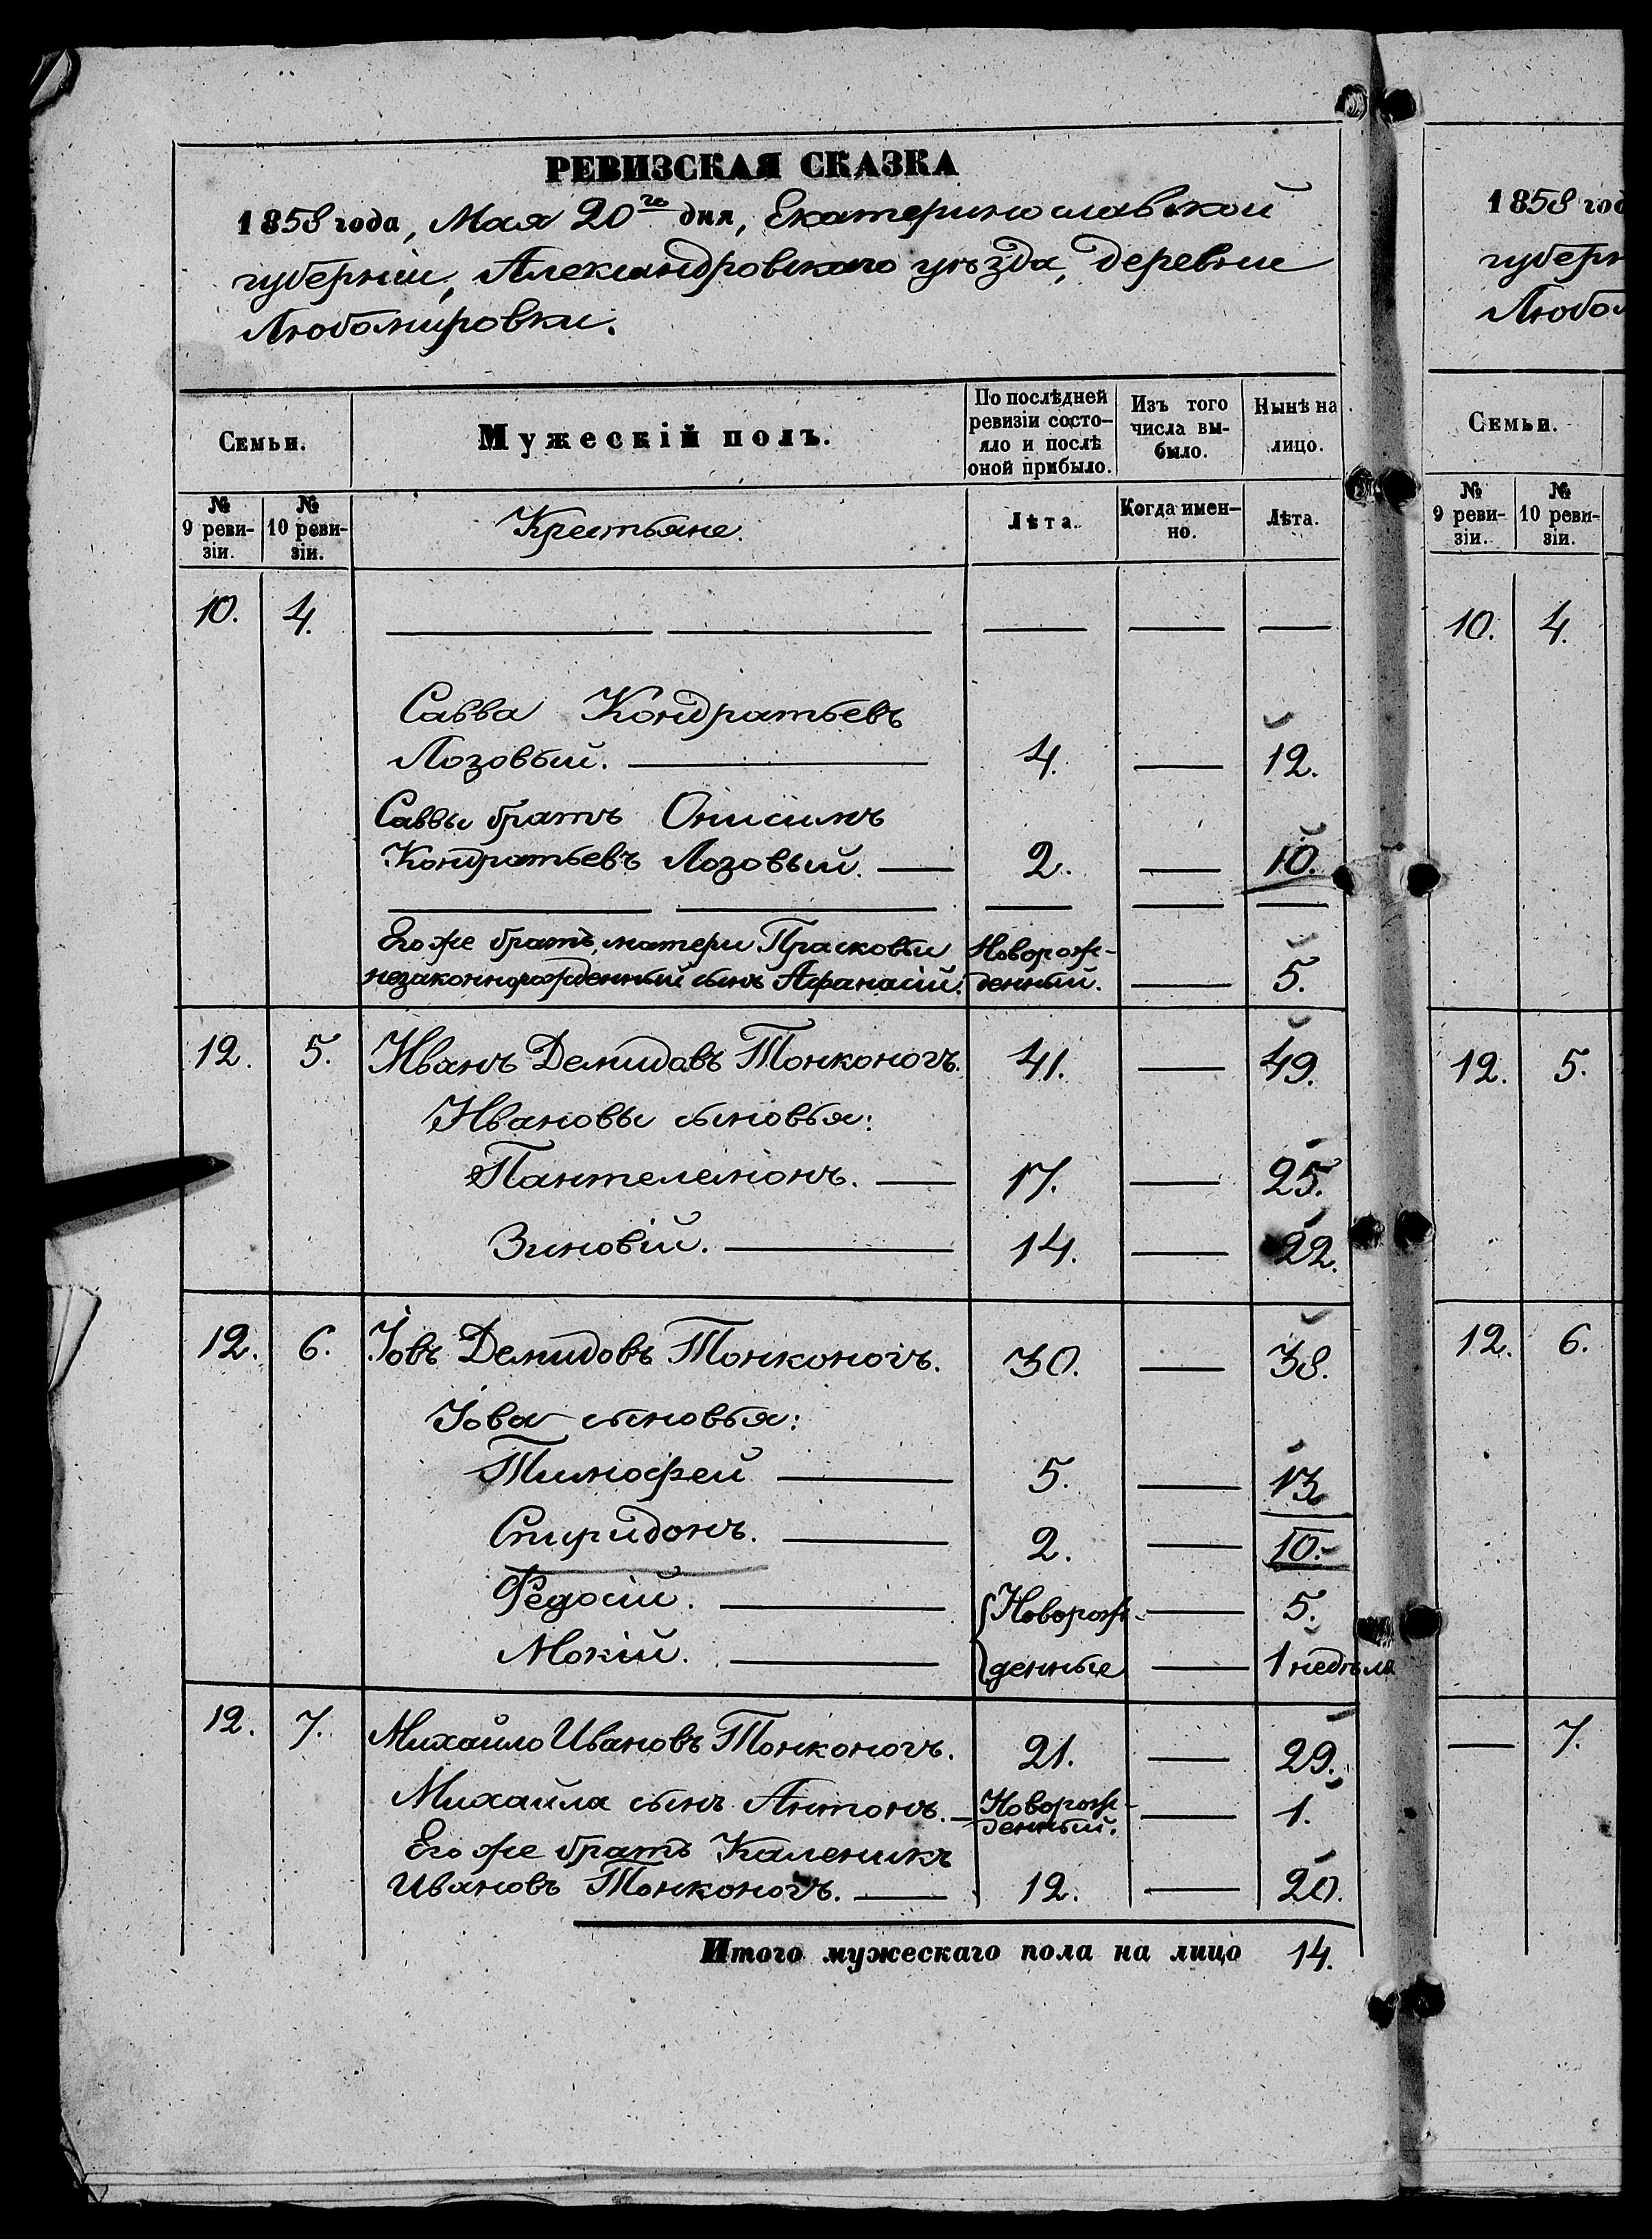 РЕВИЗСКАЯ СКАЗКА
1858 года, Мая 20го дня, Екатеринославской
губерніи, Александровскаго уѣзда, деревни
Любомировки.
Семьи.
Мужескій полъ.
По послѣдней
ревизіи состо-
яло и послѣ
оной прибыло.
Изъ того
числа вы-
было.
Нынѣ на
лицо.
№
9 реви-
зіи.
№
10 реви-
зіи.
Крестьяне.
Лѣта.
Когда имен-
но.
Лѣта.
10. 4. — — — — —
Савва Кондратьевъ
Лозовый. — 4. — 12.
Саввы братъ Онисимъ
Кондратьевъ Лозовый. — 2. — 10.
— — — — —
Его же братъ, матери Прасковьи Новорож-
незаконнорожденный сынъ Афанасій. денный. — 5.
12. 5. Иванъ Демидовъ Тонконогъ. 41. — 49.
Ивановы сыновья:
Пантелемонъ. — 17. — 25.
Зиновій. — 14. — 22.
12. 6. Іовъ Демидовъ Тонконогъ. 30. — 38.
Іова сыновья:
Тимофей — 5. — 13.
Спиридонъ. — 2. — 10.
Федосій. — Новорож- — 5.
Мокій. — денные — 1 недѣля
12. 7. Михайло Ивановъ Тонконогъ. 21. — 29.
Михайла сынъ Антонъ. — Новорож-
денный. — 1.
Его же братъ Каленикъ
Ивановъ Тонконогъ. — 12. — 20.
Итого мужескаго пола на лицо 14.
1858 год
губерн
Любом
Семьи.
№
9 реви-
зіи.
№
10 реви-
зіи.
10. 4.
12. 5.
12. 6.
— 7.